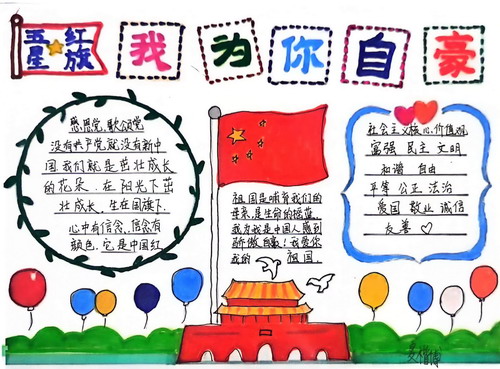 五星红旗
我为你自豪
感恩党，歌颂党
没有共产党，就没有新中
国我们就是茁壮成长
的花朵，在阳光下茁
壮成长，生在国旗下，
心中有信念，信念有
颜色，它是中国红
祖国是哺育我们的
母亲，是生命的摇篮，
我为我是中国人感到
骄傲自豪！我爱你
我的祖国
社会主义核心价值观
富强 民主 文明
和谐 自由
平等 公正 法治
爱国 敬业 诚信
友善